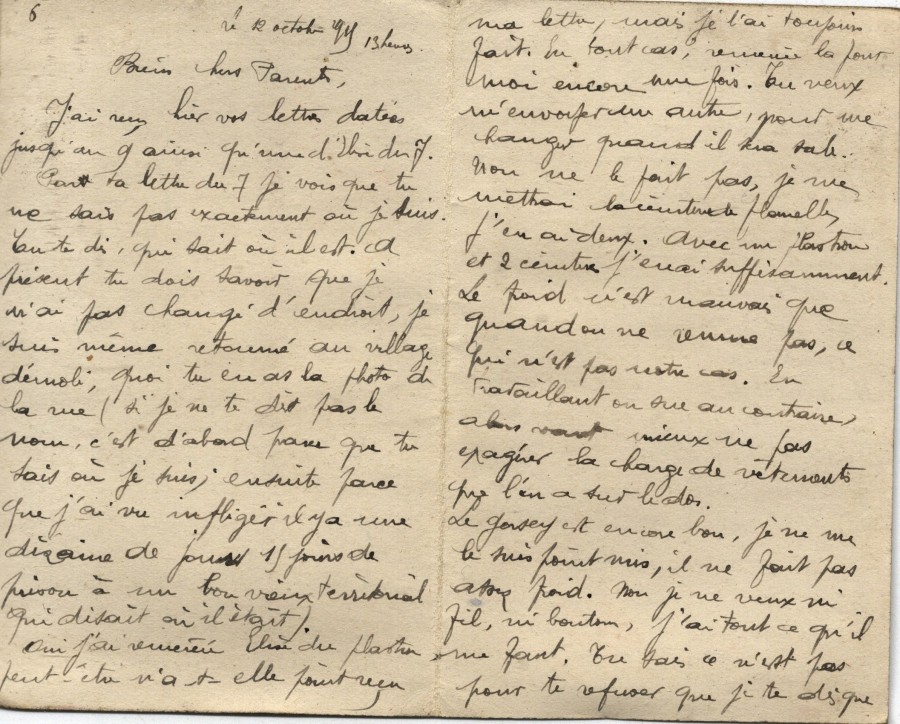 6
le 12 octobre 1915 13 heures.
Biens chers Parents,
J'ai reçu hier vos lettres datées
jusqu'au 9 ainsi qu'une d'Elise du 7.
Par ta lettre du 7 je vois que tu
ne sais pas exactement où je suis.
Tante dis, qui sait où il est. A
présent tu dois savoir que je
n'ai pas changé d'endroit, je
suis même retourné au village
démoli, quoi tu en as la photo de
la rue (si je ne te dis pas le
nom, c'est d'abord parce que tu
sais où je suis; ensuite parce
que j'ai vu infliger il y a une
dizaine de jours 15 jours de
prison à un bon vieux territorial
qui disait où il était)
Oui j'ai remercié Elise du plastron
peut-être n'a-t-elle point reçu
ma lettre, mais je l'ai toujours
fait. En tout cas, remercie la pour
moi encore une fois. Tu veux
m'envoyer un autre, pour me
changer quand il sera sale.
Non ne le fait pas, je me
mettrai la ceinture de flanelle,
j'en ai deux. Avec un plastron
et 2 ceintures j'en ai suffisamment.
Le froid n'est mauvais que
quand on ne remue pas, ce
qui n'est pas notre cas. En
travaillant on sue au contraire,
alors vaut mieux ne pas
exagérer la charge de vêtements
que l'on a sur le dos.
Le jersey est encore bon, je ne me
le suis point mis, il ne fait pas
assez froid. Non je ne veux ni
fil, ni boutons, j'ai tout ce qu'il
me faut. Tu sais ce n'est pas
pour te refuser que je te dis que